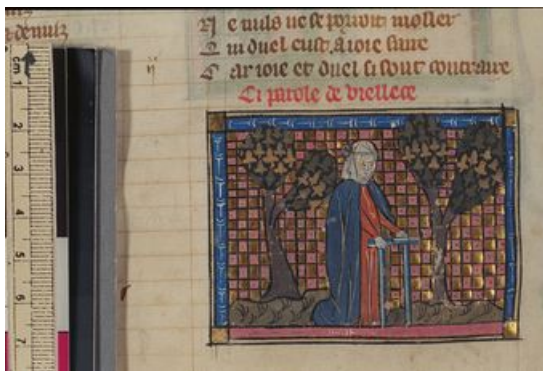 demitz
N e nuls ne se porroit moller
Q ui duel eust a ioie faire
C ar ioie et duel si sont contraire
Ci parole de viellece
n
cm 1
2
3
4
5
6
7